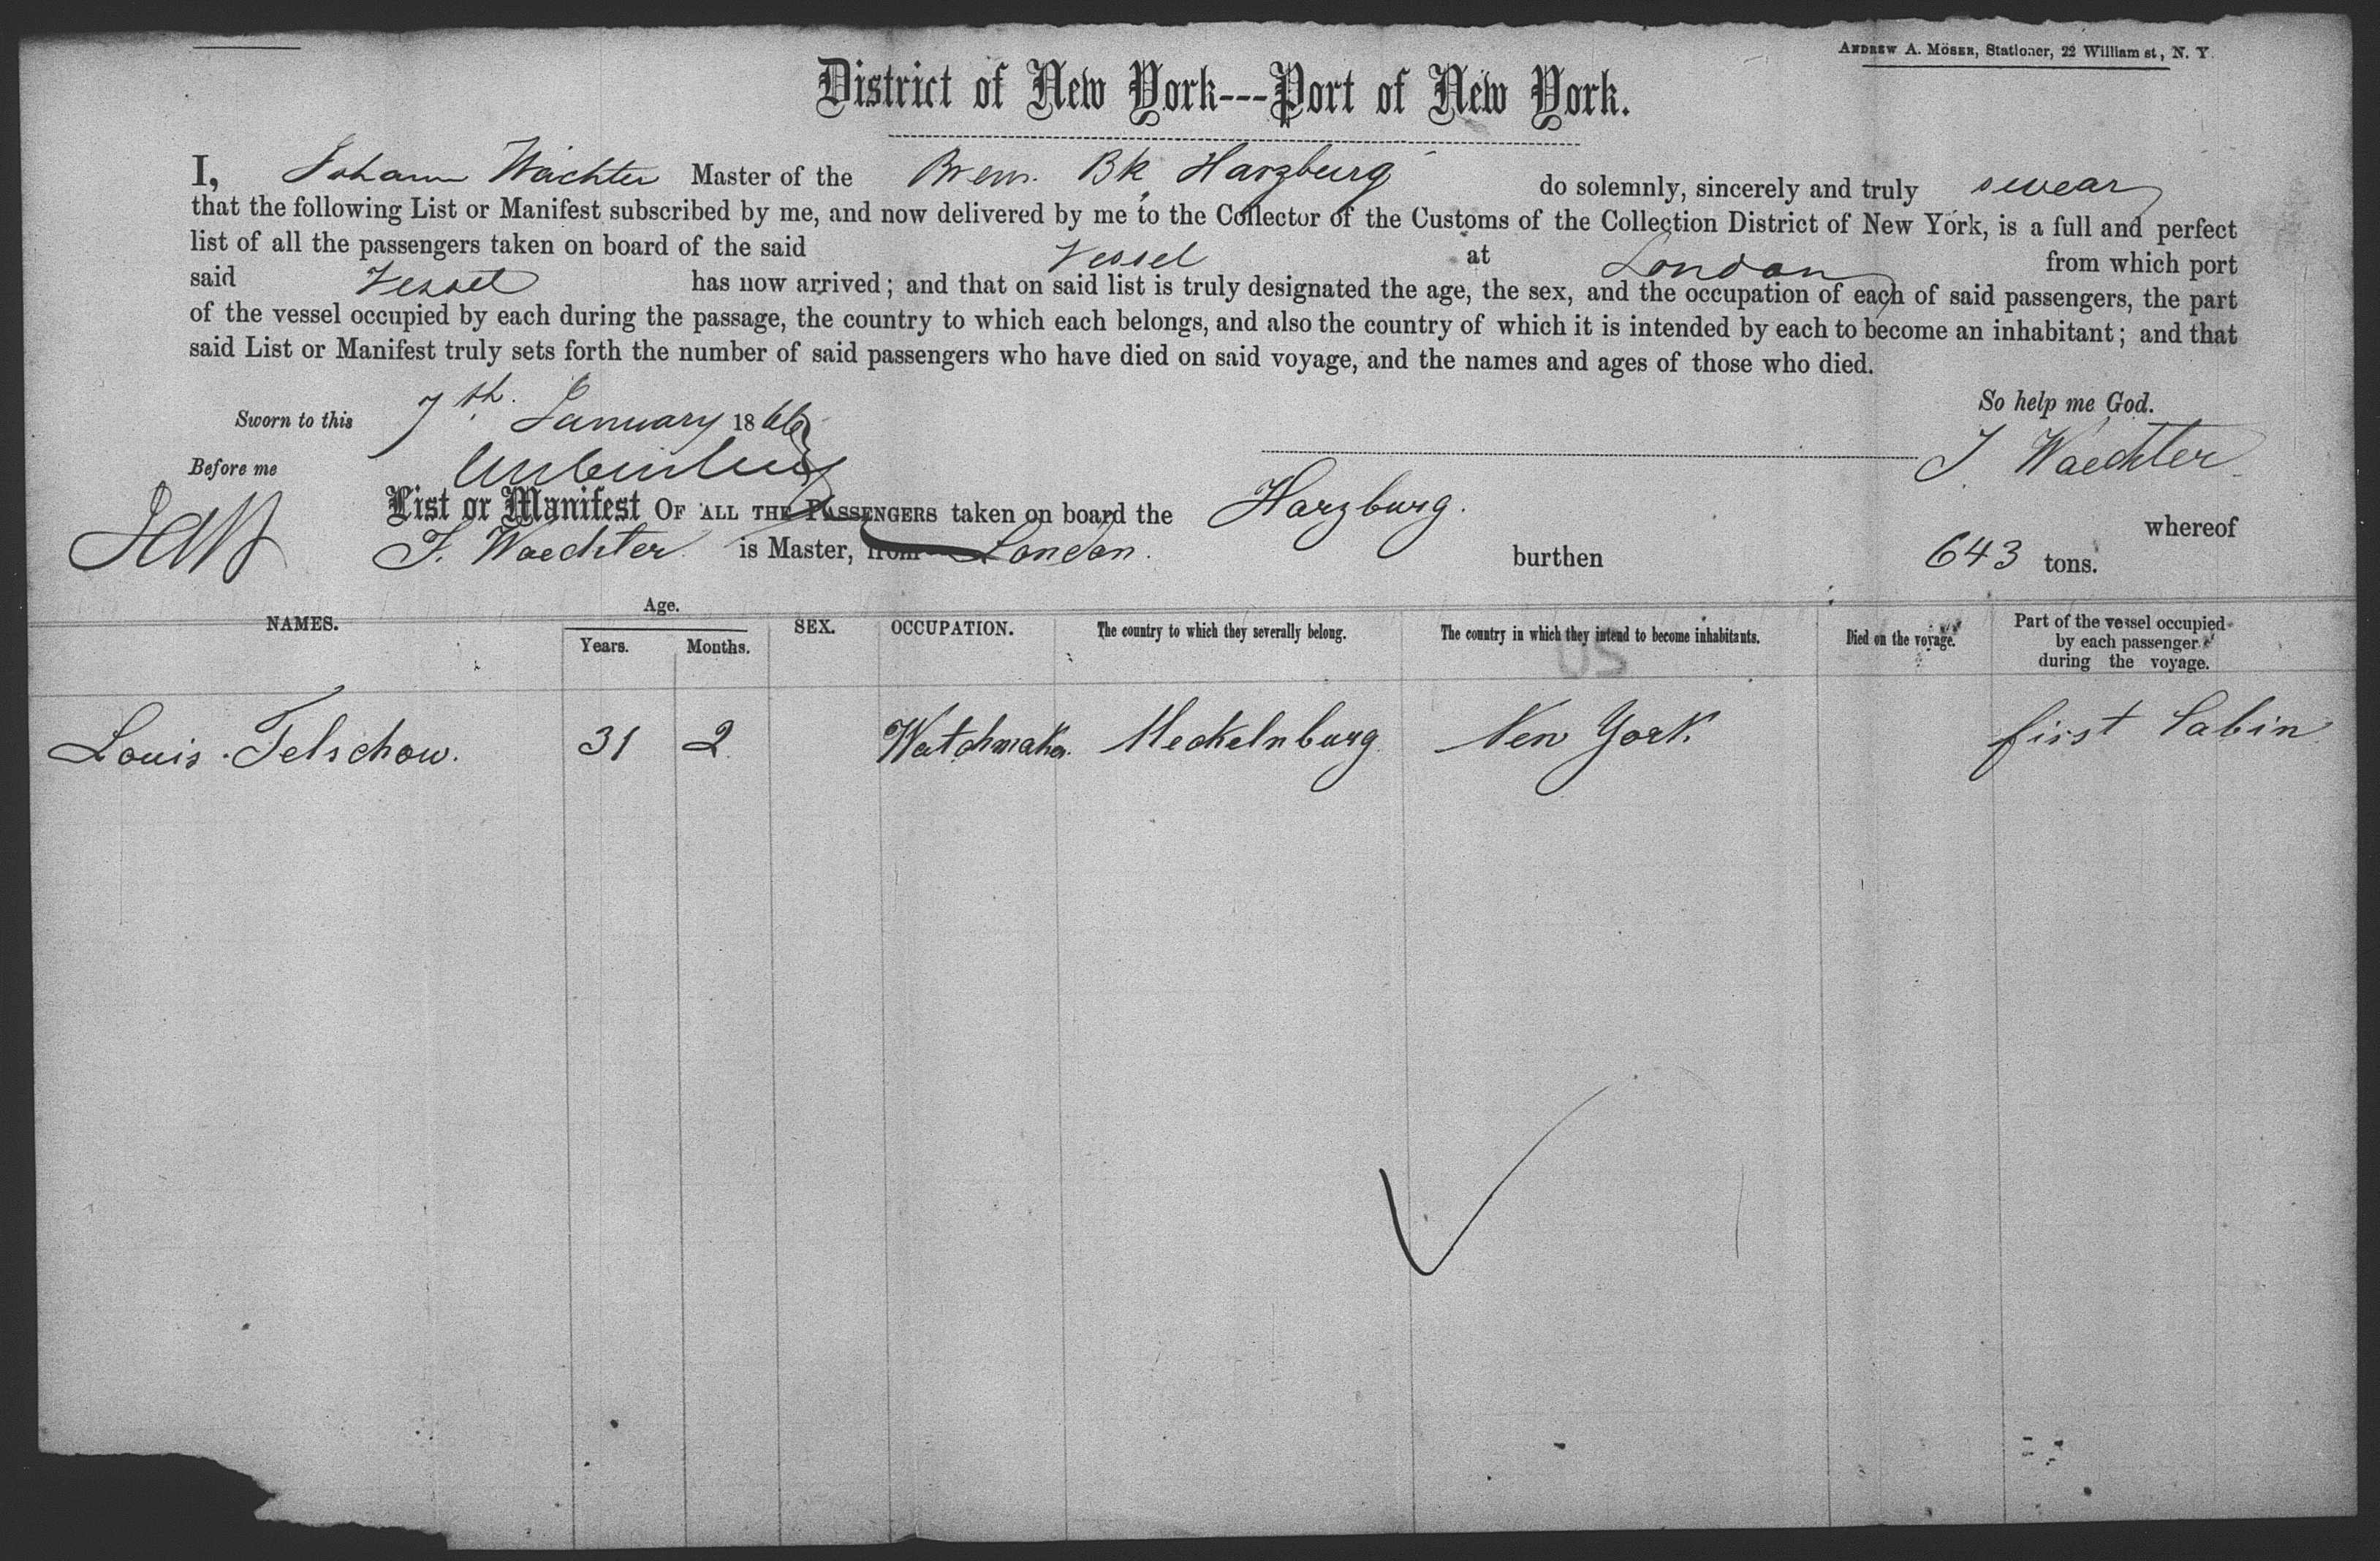 ANDREW A. MOSER, Stationer, 22 William st, N. Y.
District of New York---Port of New York.
I, Johann Wächter Master of the Brem. Bk Harzburg do solemnly, sincerely and truly swear
that the following List or Manifest subscribed by me, and now delivered by me to the Collector of the Customs of the Collection District of New York, is a full and perfect
list of all the passengers taken on board of the said Vessel at London from which port
said Vessel has now arrived; and that on said list is truly designated the age, the sex, and the occupation of each of said passengers, the part
of the vessel occupied by each during the passage, the country to which each belongs, and also the country of which it is intended by each to become an inhabitant; and that
said List or Manifest truly sets forth the number of said passengers who have died on said voyage, and the names and ages of those who died.
So help me God.
Sworn to this 7th. January 1866
Before me
J Waechter
List or Manifest OF ALL THE PASSENGERS taken on board the Harzburg. whereof
J. Waechter is Master, from London. burthen 643 tons.
NAMES. Age. Years. Months. SEX. OCCUPATION. The country to which they severally belong. The country in which they intend to become inhabitants. Died on the voyage. Part of the vessel occupied by each passenger during the voyage.
US
Louis Telschow. 31 2 Watchmaker Meckelnburg New York first Cabin